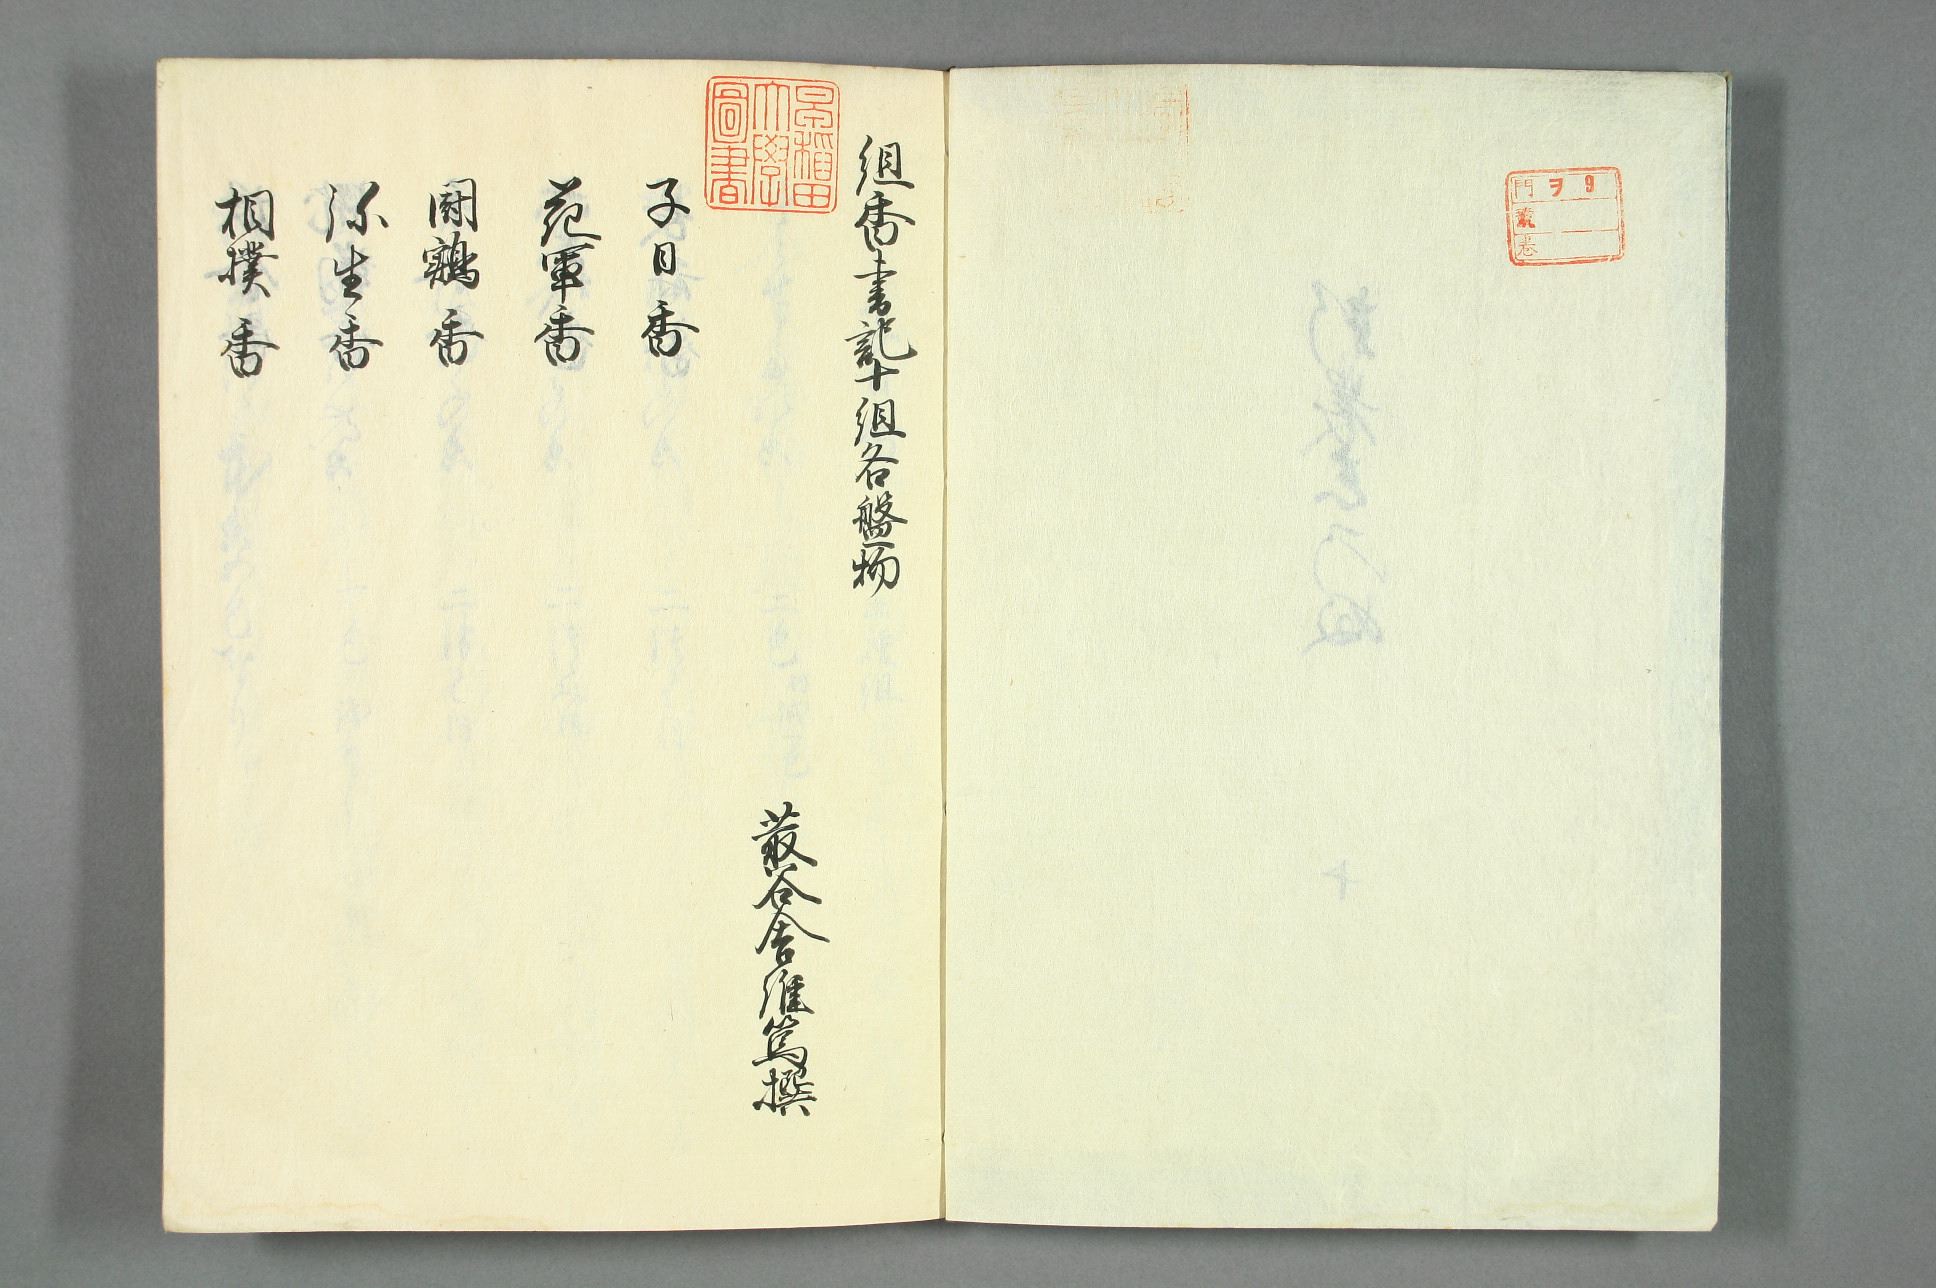 門 ヲ 9
號
巻
組香書記十組各盤物
早稲田
大學
圖書
叢谷舎維篤撰
子日香
花軍香
闘鶏香
弥生香
相撲香